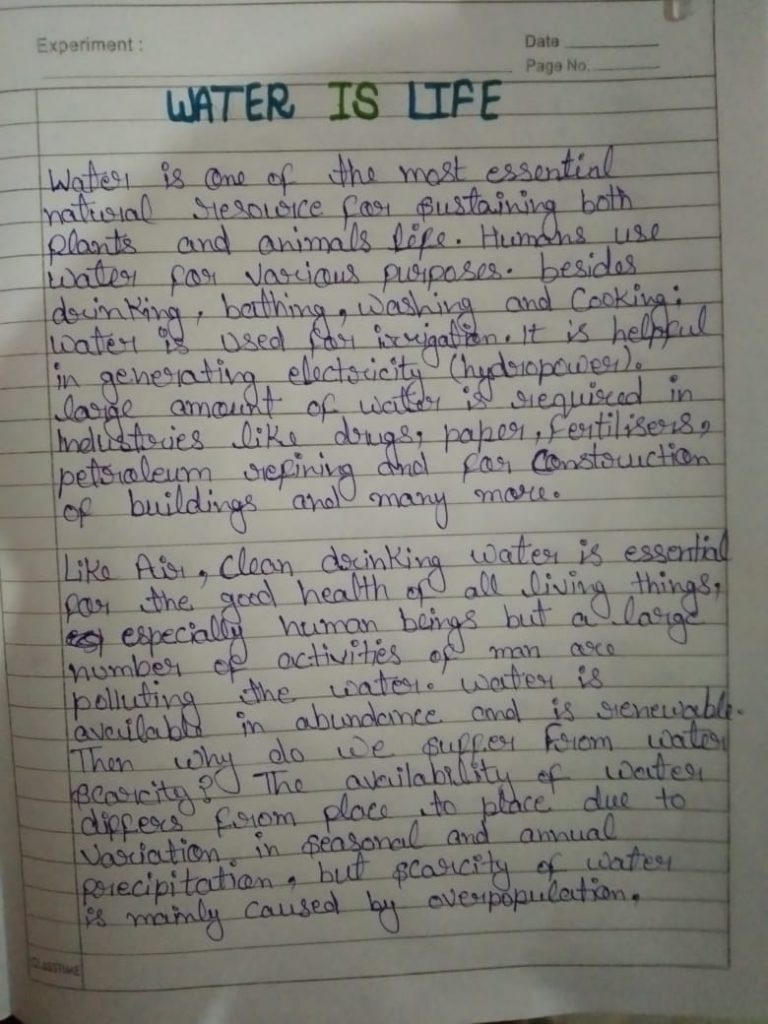 Experiment :
Date
Page No.
WATER IS LIFE
Water is one of the most essential
natural resource for sustaining both
plants and animals life. Humans use
water for various purposes. besides
drinking, bathing, washing and Cooking;
water is used for irrigation. It is helpful
in generating electricity (hydropower).
large amount of water is required in
Industries like drugs, paper, fertilisers,
petroleum refining and for Construction
of buildings and many more.
Like Air, Clean drinking water is essential
for the good health of all living things,
especially human beings but a large
number of activities of man are
polluting the water. water is
available in abundance and is renewable.
Then why do we suffer from water
scarcity? The availability of water
differs from place to place due to
variation in seasonal and annual
precipitation, but scarcity of water
is mainly caused by overpopulation.
CLASSTIME